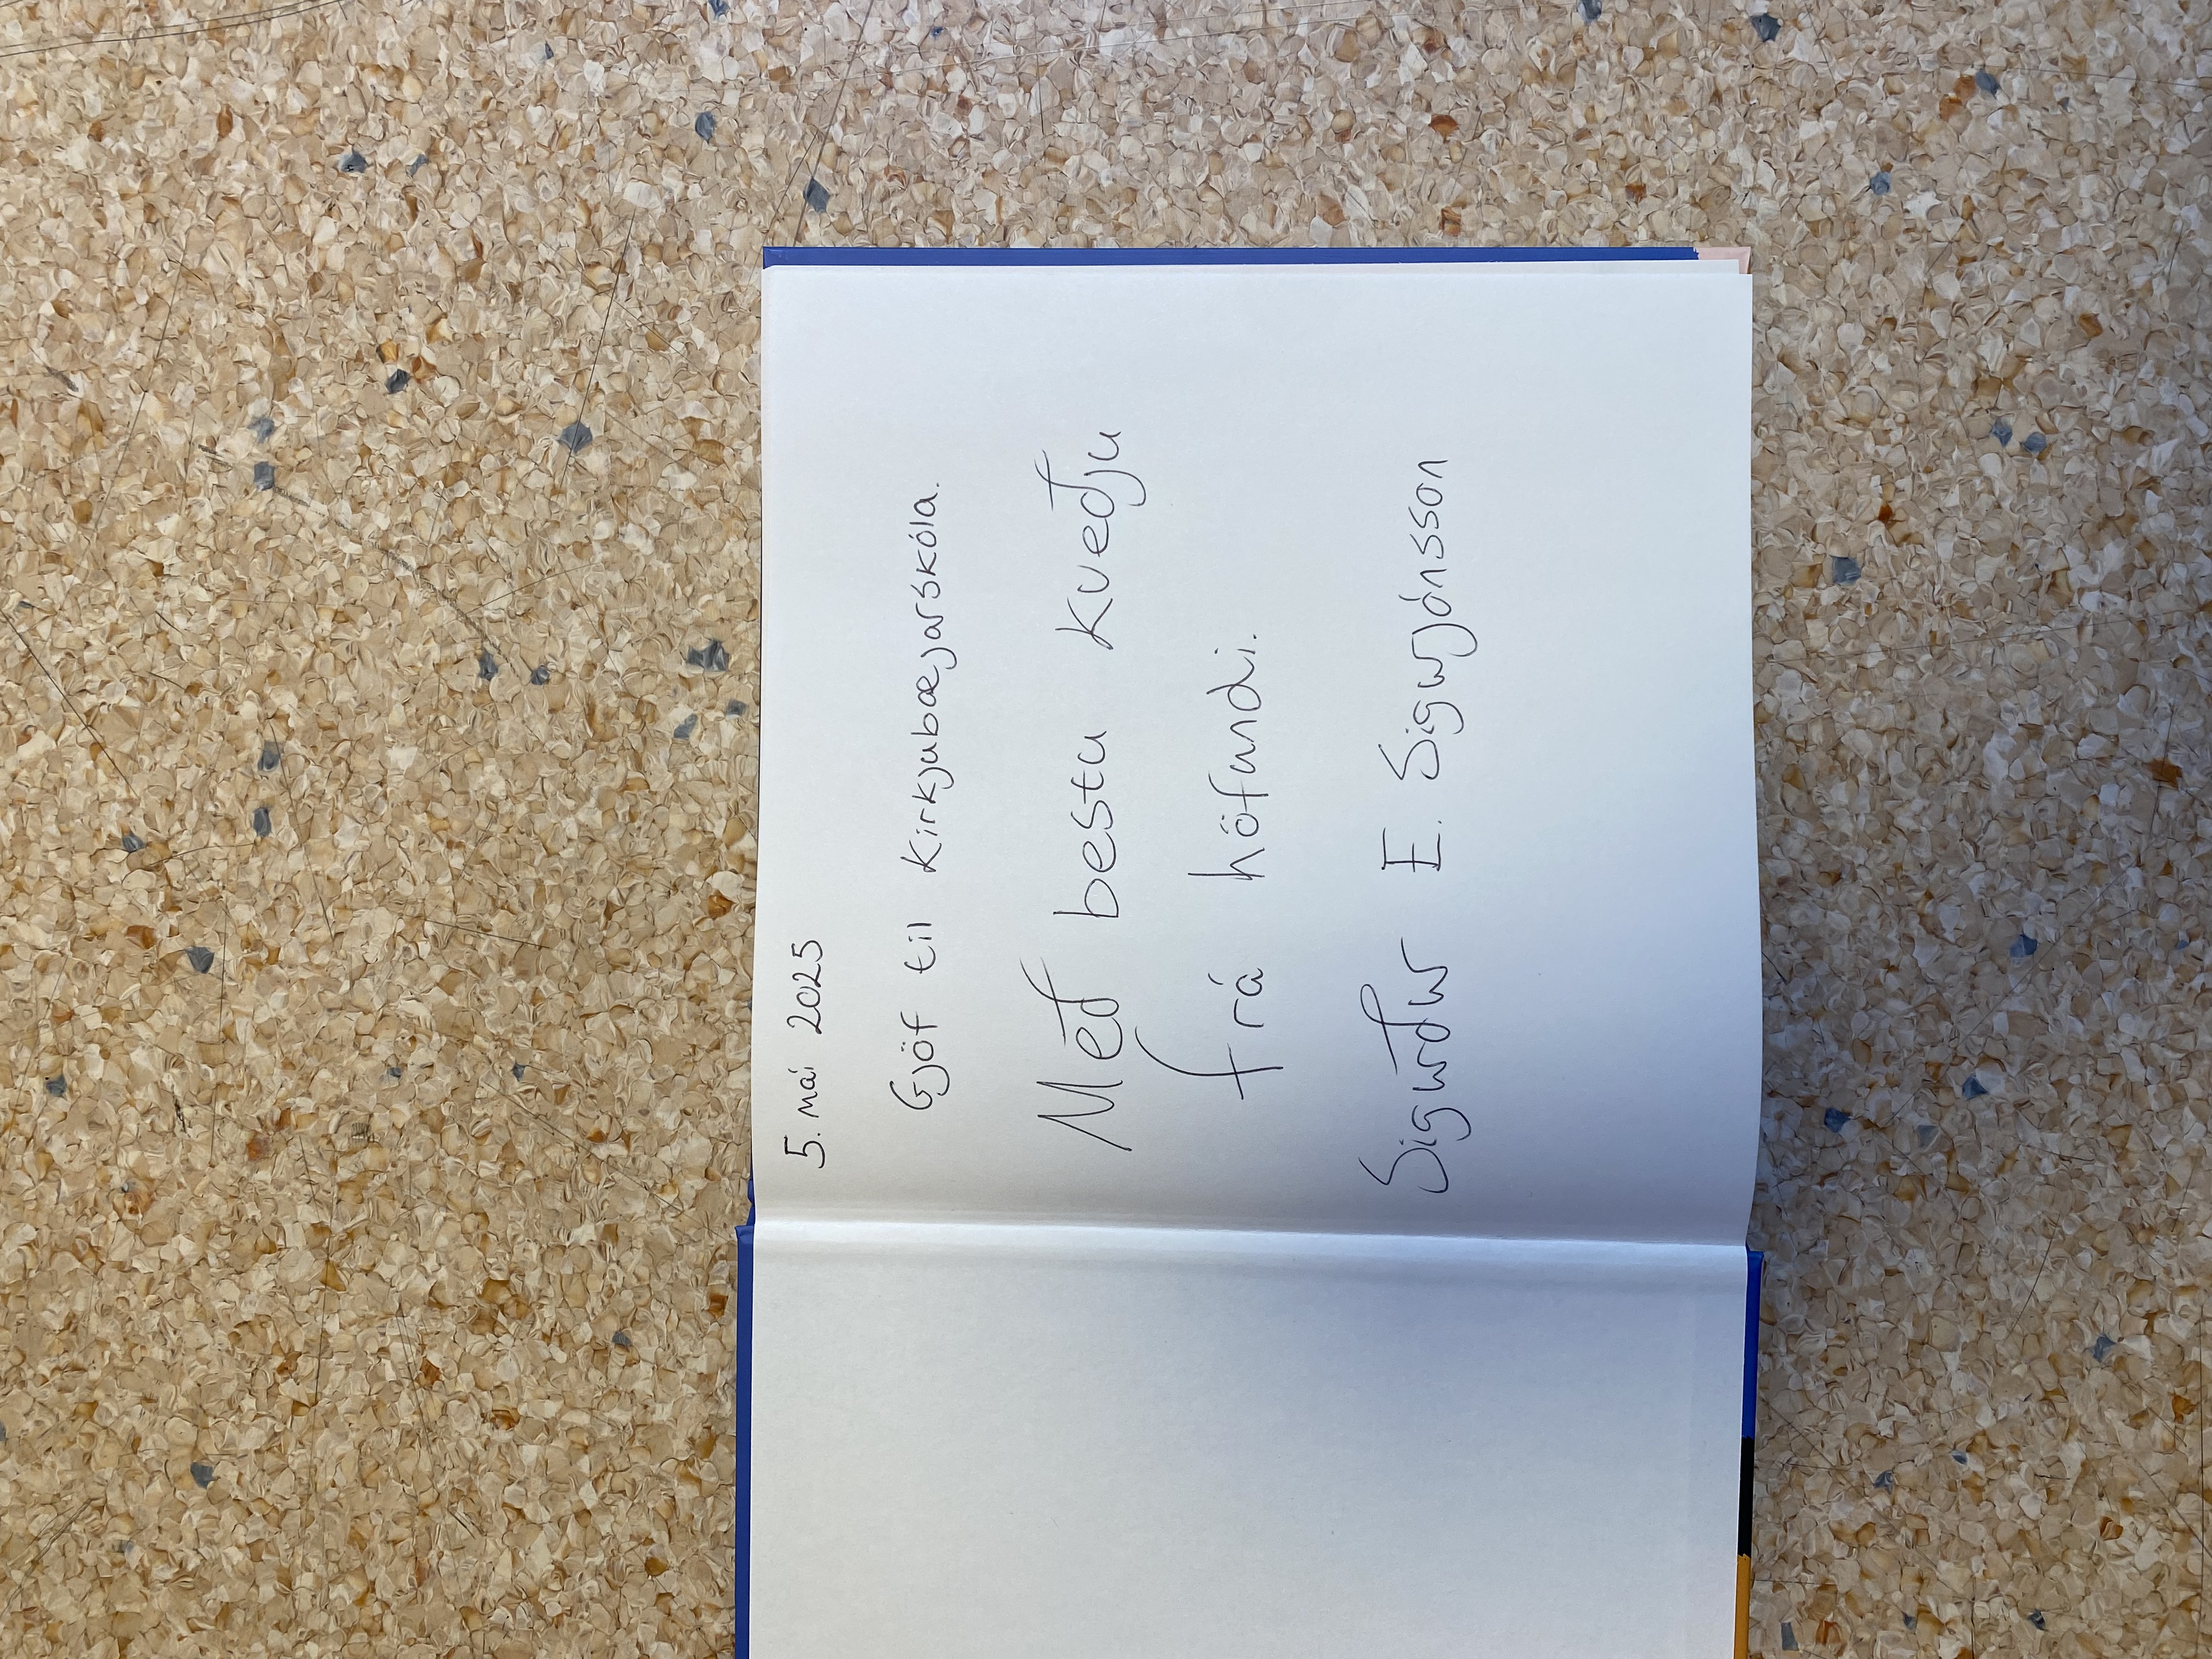 5. maí 2025
Gjöf til Kirkjubæjarskóla.
Með bestu kveðju
frá höfundi.
Sigurður E. Sigurjónsson